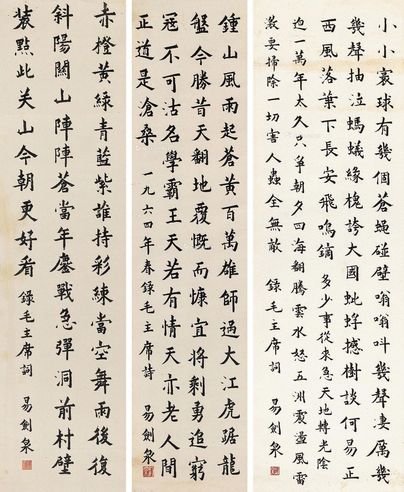 小小寰球有幾個蒼蠅碰壁嗡嗡叫幾聲凄厲幾
幾聲抽泣螞蟻緣槐誇大國蚍蜉撼樹談何易正
西風落葉下長安飛鳴鏑 多少事從來急天地轉光陰
迫一萬年太久只争朝夕四海翻騰雲水怒五洲震盪風雷
激要掃除一切害人蟲全無敵 錄毛主席詞 易劍泉
鍾山風雨起蒼黄百萬雄師過大江虎踞龍
盤今勝昔天翻地覆慨而慷宜將剩勇追窮
寇不可沽名學霸王天若有情天亦老人間
正道是滄桑 一九六四年春錄毛主席詩 易劍泉
赤橙黄綠青藍紫誰持彩練當空舞雨後復
斜陽關山陣陣蒼當年鏖戰急彈洞前村壁
装點此关山今朝更好看 錄毛主席詞 易劍泉